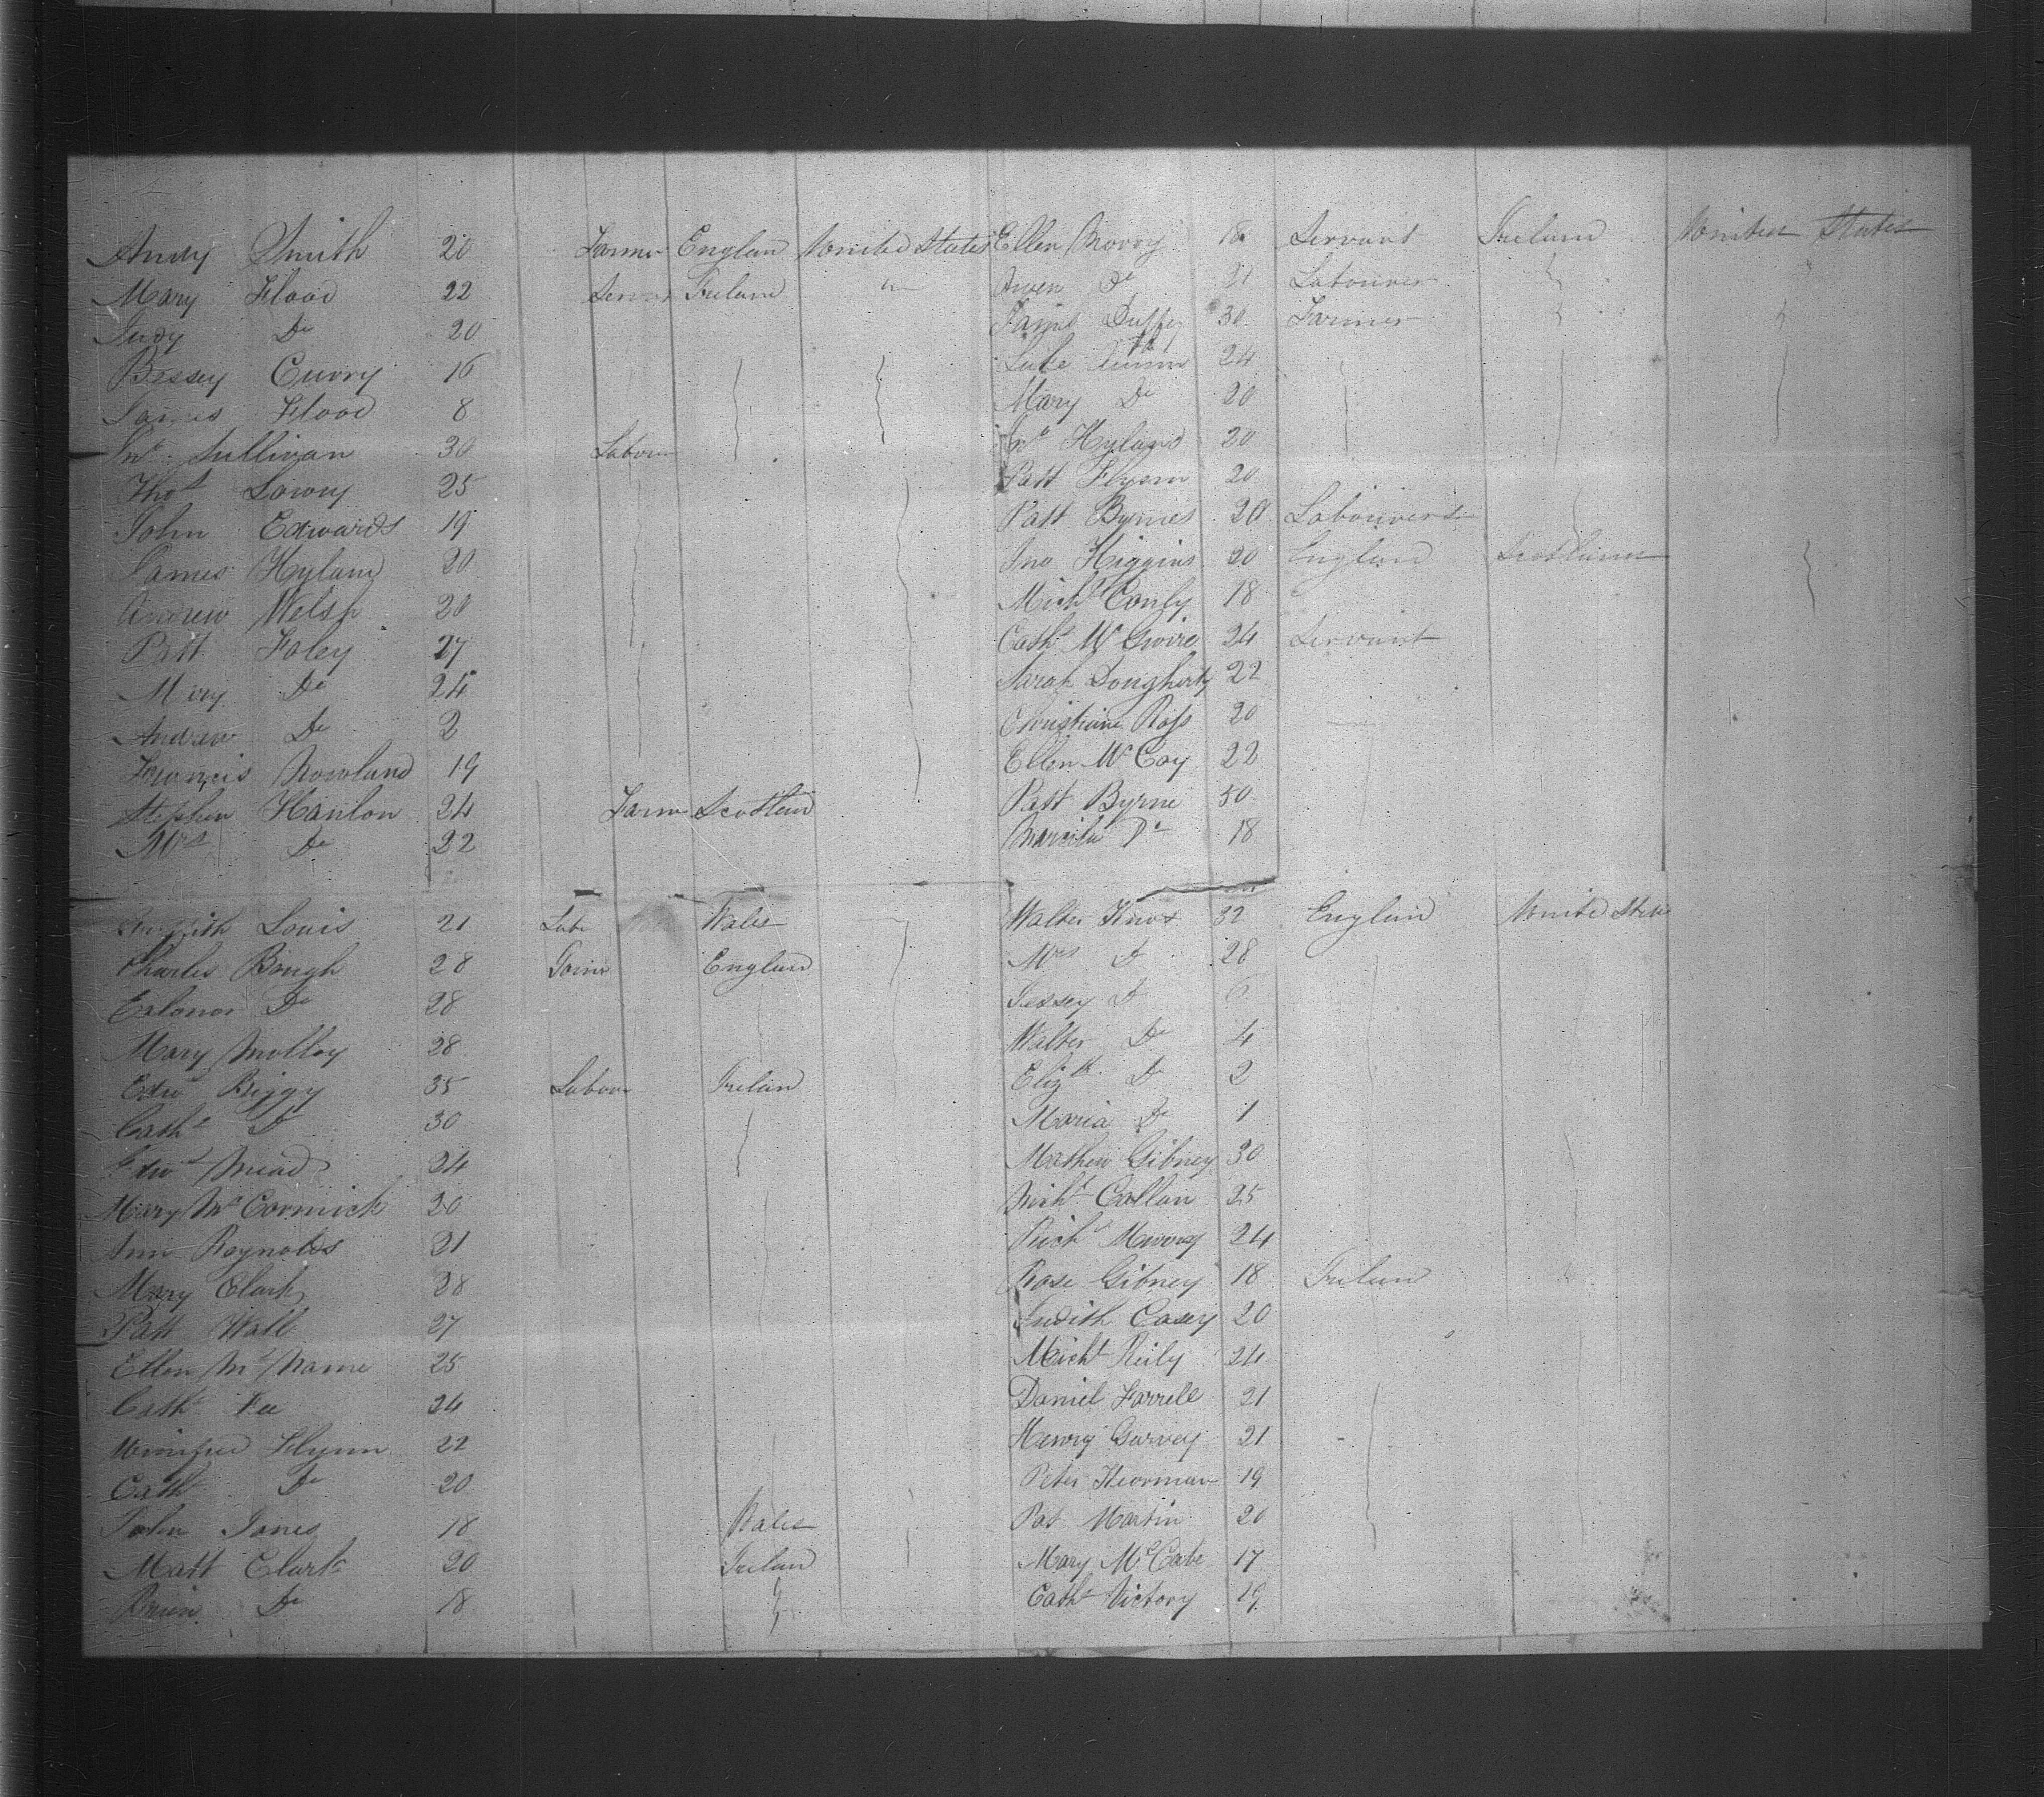 Andy Smith 20 Farmer Englan United States
Mary Flood 22 Servt Ireland "
Judy Do 20
Bessey Curry 16
James Flood 8
Jno Sullivan 30 Labour
Thos Lowry 25
John Edwards 19
James Hyland 20
Andrew Welsh 20
Patt Foley 27
Mary Do 24
Andrew Do 2
Francis Rowland 19
Stephen Hanlon 24 Farm Scotlan
Mrs Do 22
Louis 21 Labr Wales
Charles Bough 28 Farmr England
Do 28
Mary Molloy 28
Edw Biggy 35 Labour Irelan
Cathe Do 30
Edwd Mead 24
Mary McCormick 20
Ann Reynolds 21
Mary Clark 28
Patt Wall 27
Ellen McName 25
Cathe Fee 24
Winifred Flynn 22
Cath Do 20
John Jones 18 Wales
Matt Clark 20 Irelan
Do 18
Ellen 18 Servant Ireland United States
Owen Do 21 Labourer
James Duffey 30 Farmer
Luke 24
Mary Do 20
Jno Hyland 20
Patt Flynn 20
Patt Byrnes 20 Labourers
Jno Higgins 20 Englan Scotland
Michl Conly 18
Cathe McGwire 24 Servant
Sarah Dougherty 22
Christiane Ross 20
Ellen McCoy 22
Patt Byrne 50
Do 18
Walter Knox 32 Englan United States
Mrs D 28
Jessey D 6
Walter Do 4
Elizth Do 2
Maria Do 1
Mathew Gibney 30
Michl Callan 25
Richd Murray 24
Rose Gibney 18 Irelan
Judith Casey 20
Michl Reily 24
Daniel Farrell 21
Henry Garvey 21
Peter 19
Pat Martin 20
Mary McCabe 17
Cathe Victory 19